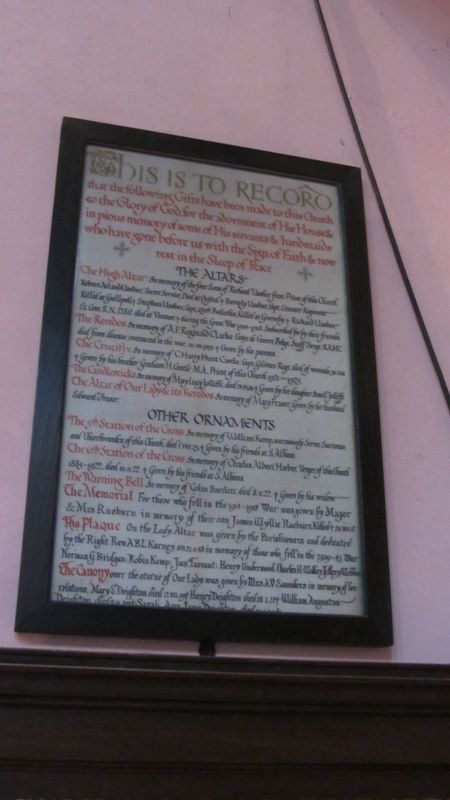 This is to Record
that the following Gifts have been made to this Church
to the Glory of God for the adornment of His House &
in pious memory of some of His servants & handmaids
who have gone before us with the Sign of Faith & now
rest in the Sleep of Peace
THE ALTARS
The High Altar In memory of the four Sons of Richard Ussher first Priest of this Church
Robert Ussher, Secret Service, Died at & Beverly Ussher, Capt. Leinster Regiment
Killed at Gallipoli & Stephen Ussher, Capt. 129th Baluchis, Killed at Givenchy & Richard Ussher
Lt. Com. R.N. D.S.O. died at & during the Great War 1914-1918. Subscribed for by their friends.
The Reredos In memory of A.F. Reginald Clarke. Staff Sergt. R.A.M.C.
died from disease contracted in the war. & Given by his parents
The Crucifix In memory of C. Harry Hunt Castle, Capt. Regt. died of wounds
& Given by his brother Graham H. Castle M.A. Priest of this Church 1917-1925
The Candlesticks In memory of Mary Lucy Jolliffe, died & Given by her daughter Jolliffe
The Altar of Our Lady & its Reredos In memory of Mary Fraser Given by her husband
Edward Fraser
OTHER ORNAMENTS
The 5th Station of the Cross In memory of William Kemp, successively Server, Sacristan
and Churchwarden of this Church, died & Given by his friends at S. Albans
The 6th Station of the Cross In memory of Charles Albert Harber, Verger of this Church
1885-1922. died 10.11.22. & Given by his friends at S. Albans
The Warning Bell In memory of Colin Bartlett, died 8.x.22 & Given by his widow
The Memorial For those who fell in the 1914-1918 War was given by Major
& Mrs Raeburn in memory of their son James Wyllie Raeburn. Killed
The Plaque On the Lady Altar was given by the Parishioners and dedicated
by the Right Rev A.B.L. Karney in memory of those who fell in the 1939-45 War
Norman G. Bridges: Robin Kemp: Jack Tarrant: Henry Underwood: Charles H. Walker:
The Canopy over the statue of Our Lady was given by Mrs A.V. Saunders in memory of her
relations, Mary E. Deighton, died Henry Deighton died William Augustus
Deighton, died Sarah Ann Deighton, died